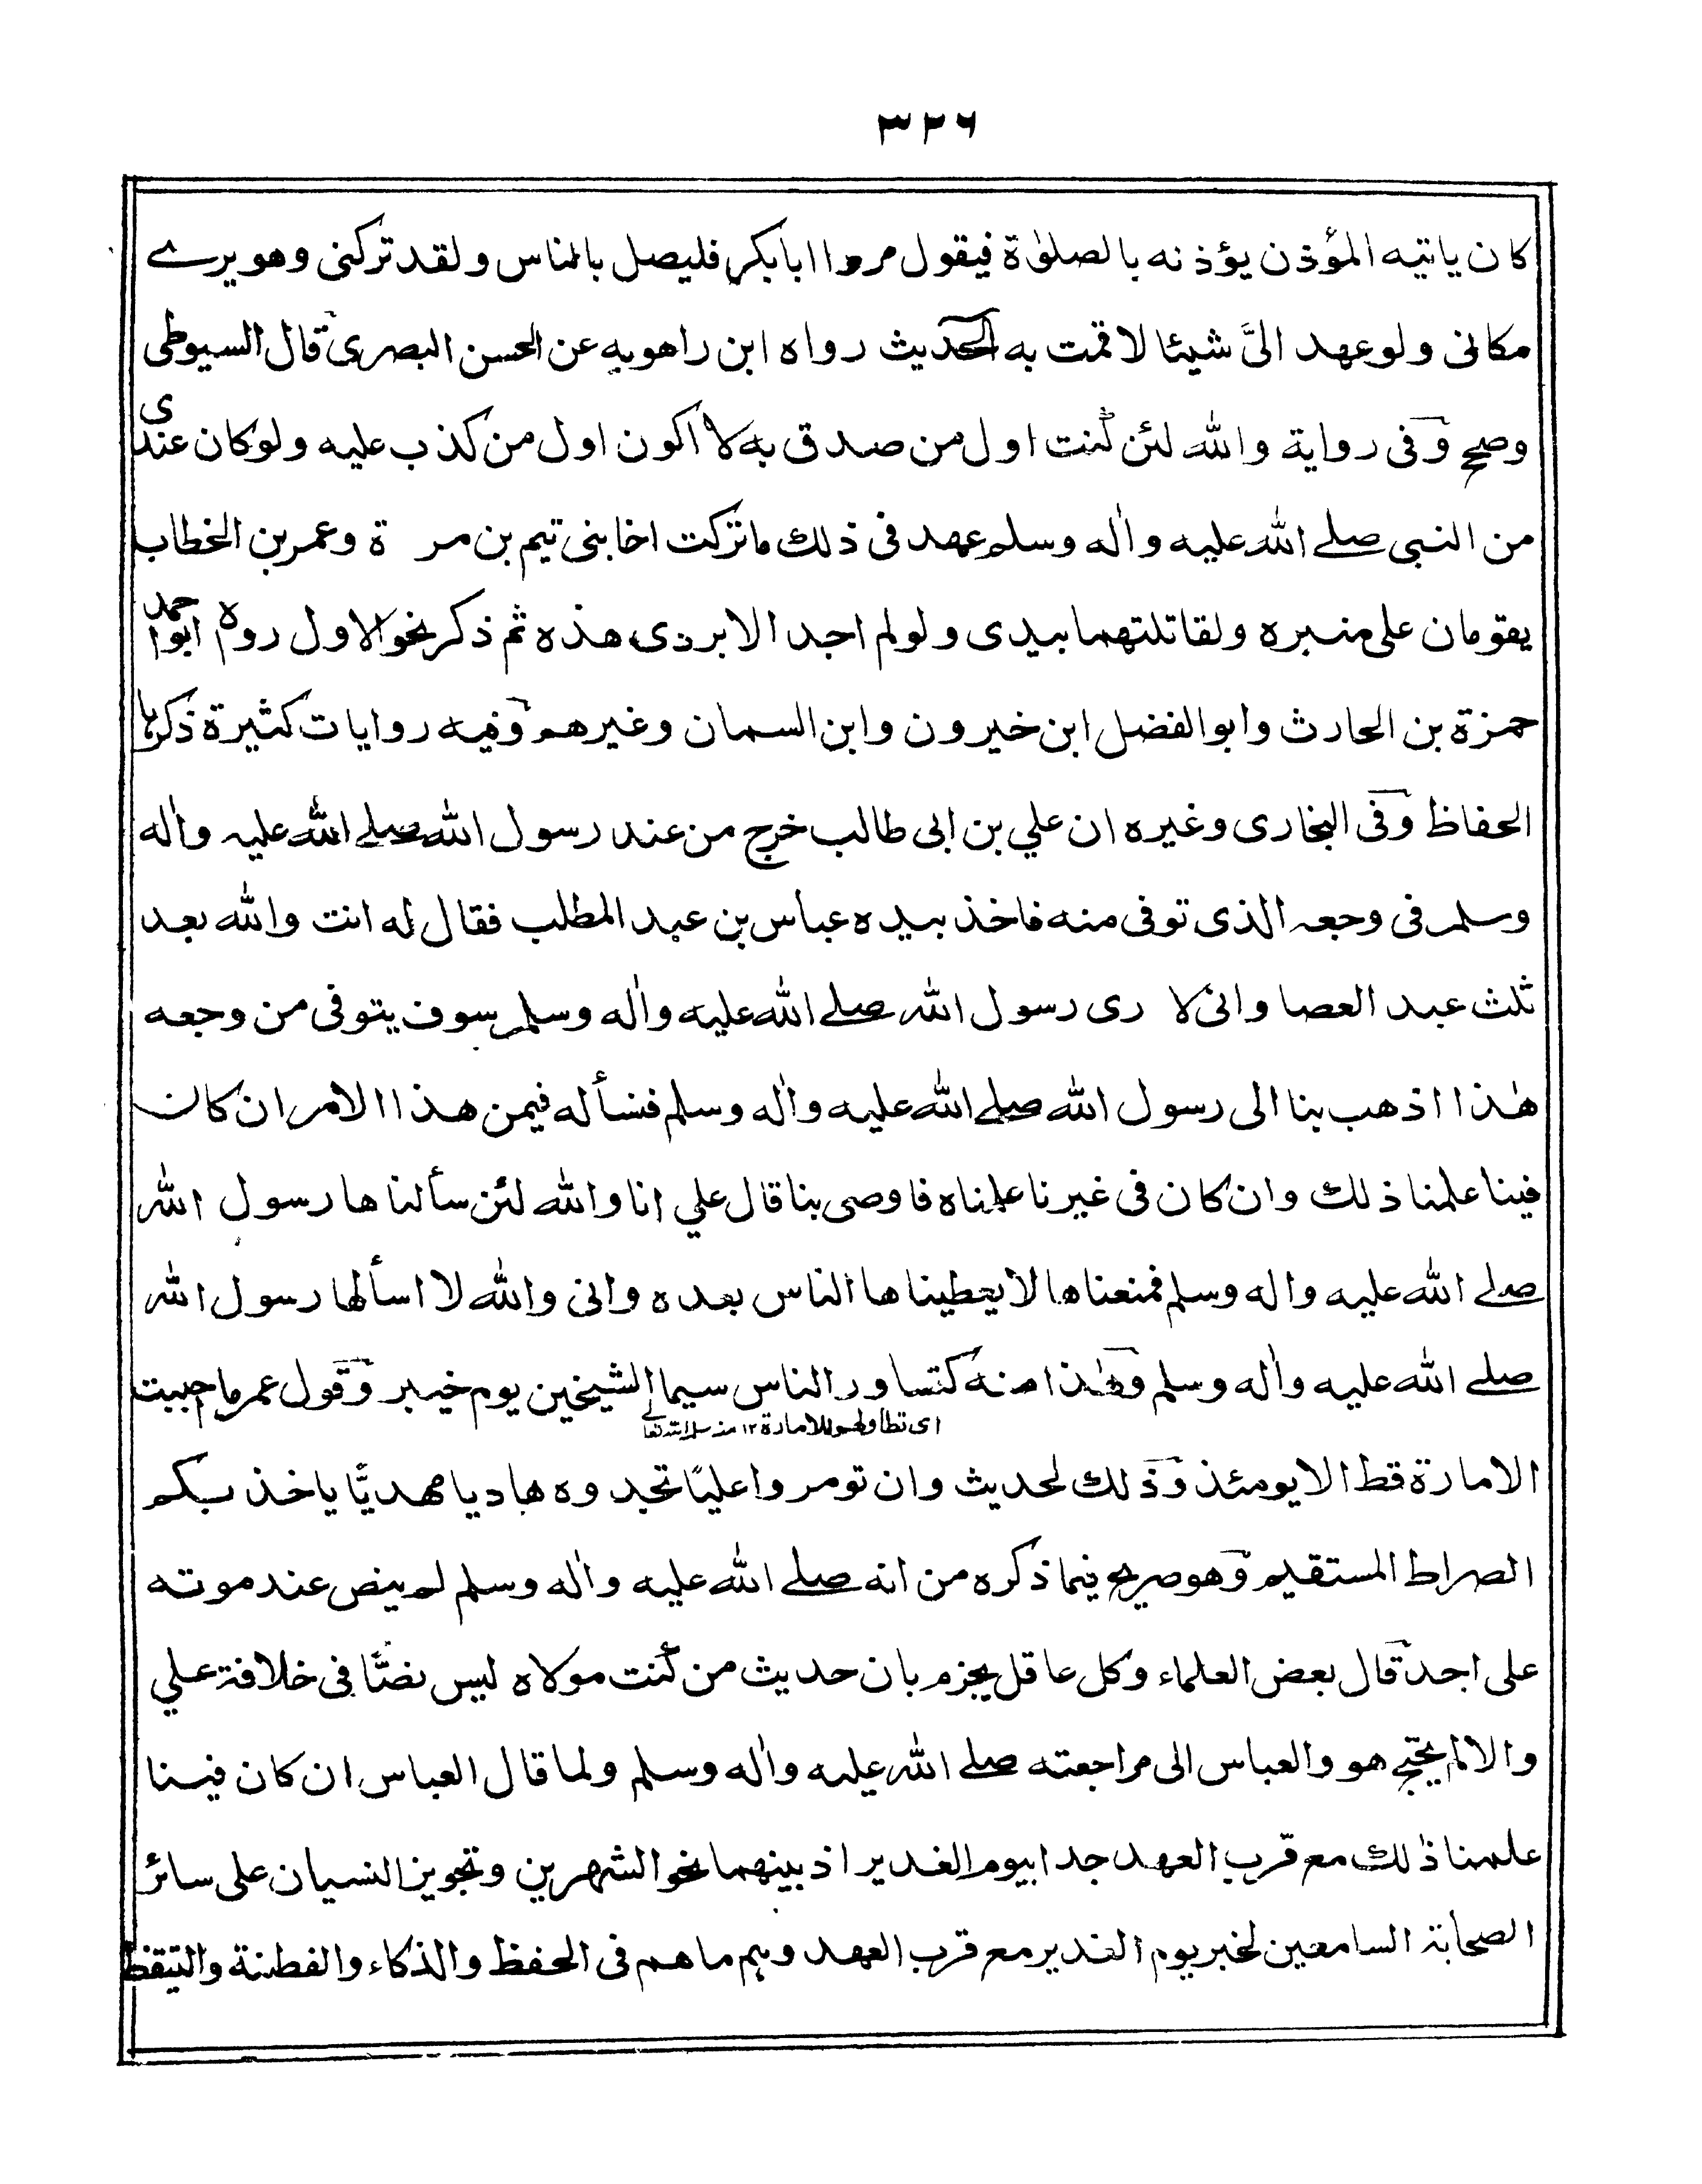 ٣٢٦
كان ياتيه المؤذن يؤذنه بالصلوٰة فيقول مروا ابابكر فليصل بالناس ولقد تركنى وهو يرے
مكانى ولو عهد الىَّ شيئا لاقمت به الحديث رواه ابن راهويه عن الحسن البصرى قال السيوطى
وصح وفى رواية والله لئن كنت اول من صدق به لا اكون اول من كذب عليه ولو كان عندى
من النبى صلے الله عليه واٰله وسلم عهد فى ذلك ما تركت اخا بنى تيم بن مرة وعمر بن الخطاب
يقومان على منبره ولقاتلتهما بيدى ولو لم اجد الا بردى هذه ثم ذكر نحو الاول رواه ابو احمد
حمزة بن الحارث وابو الفضل ابن خيرون وابن السمان وغيرهم وفيه روايات كثيرة ذكرها
الحفاظ وفى البخارى وغيره ان علي بن ابى طالب خرج من عند رسول الله صلے الله عليه واٰله
وسلم فى وجعه الذى توفى منه فاخذ بيده عباس بن عبد المطلب فقال له انت والله بعد
ثلث عبد العصا وانى لا رى رسول الله صلے الله عليه واٰله وسلم سوف يتوفى من وجعه
هٰذا اذهب بنا الى رسول الله صلے الله عليه واٰله وسلم فنسأله فيمن هذا الامر ان كان
فينا علمنا ذلك وان كان فى غيرنا علمناه فاوصى بنا قال علي انا والله لئن سألناها رسول الله
صلے الله عليه واله وسلم فمنعناها لا يعطيناها الناس بعده وانى والله لا اسألها رسول الله
صلے الله عليه واٰله وسلم وهٰذا منه كتساور الناس سيما الشيخين يوم خيبر وقول عمر ما احببت
اى تطاولهم للامارة ١٢ منه سلمه الله تعالے
الامارة قط الا يومئذ وذلك لحديث وان تومروا عليًا تجدوه هاديا مهديًّا ياخذ بكم
الصراط المستقيم وهو صريح فيما ذكره من انه صلے الله عليه واٰله وسلم لم ينص عند موته
على احد قال بعض العلماء وكل عاقل يجزم بان حديث من كنت مولاه ليس نصًّا فى خلافة علي
والا لم يحتج هو والعباس الى مراجعته صلے الله عليه واٰله وسلم ولما قال العباس ان كان فينا
علمنا ذلك مع قرب العهد جدا بيوم الغدير اذ بينهما نحو الشهرين وتجويز النسيان على سائر
الصحابة السامعين لخبر يوم الغدير مع قرب العهد وهم ما هم فى الحفظ والذكاء والفطنة والتيقظ